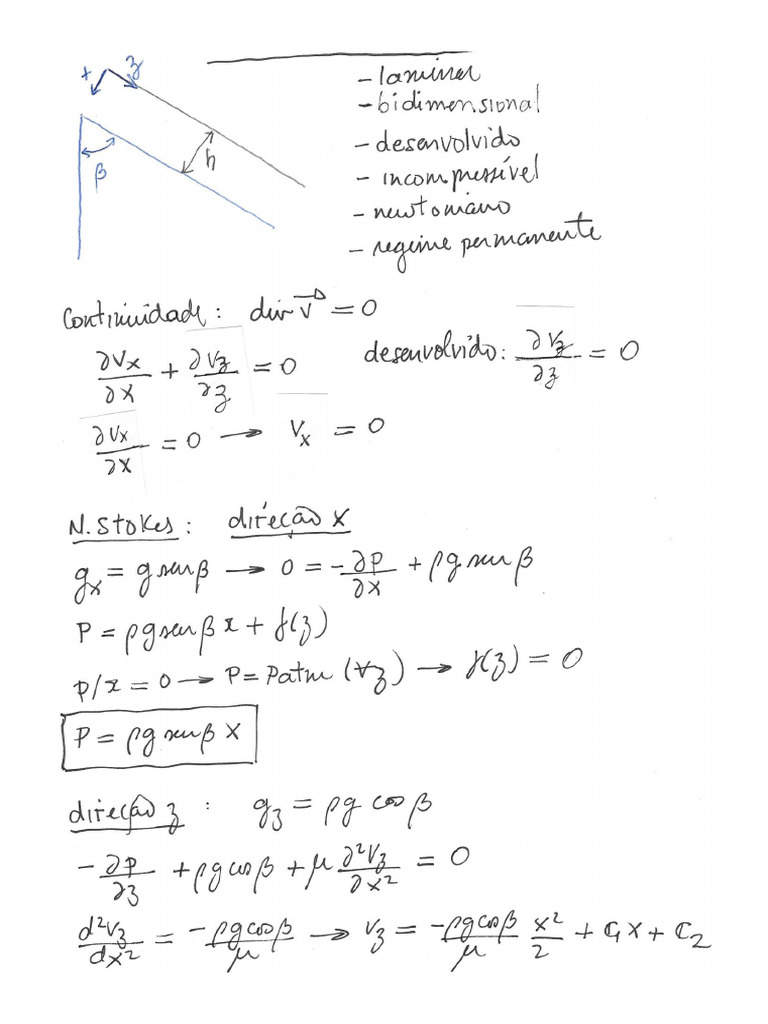 x z
β h
- laminar
- bidimensional
- desenvolvido
- incompressível
- newtoniano
- regime permanente
Continuidade: div v⃗ = 0
∂Vx/∂x + ∂Vz/∂z = 0 desenvolvido: ∂Vz/∂z = 0
∂Vx/∂x = 0 → Vx = 0
N. Stokes: direção x
gx = g sen β → 0 = -∂P/∂x + ρg sen β
P = ρg sen β x + f(z)
P/x = 0 → P = Patm (∀z) → f(z) = 0
P = ρg sen β x
direção z : gz = ρg cos β
-∂P/∂z + ρg cos β + μ ∂²Vz/∂x² = 0
d²Vz/dx² = -ρg cos β/μ → Vz = -ρg cos β/μ x²/2 + C1 x + C2